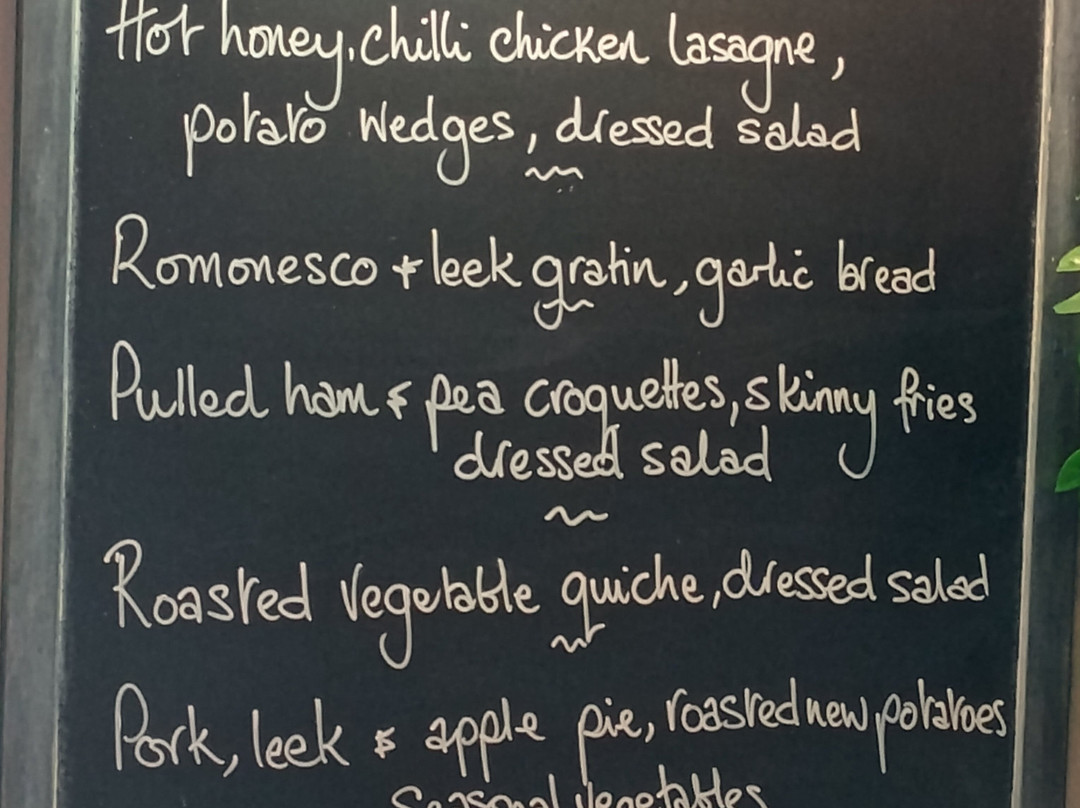 Hot honey, chilli chicken lasagne,
potato wedges, dressed salad
Romonesco + leek gratin, garlic bread
Pulled ham & pea croquettes, skinny fries
dressed salad
Roasted vegetable quiche, dressed salad
Pork, leek & apple pie, roasted new potatoes
Seasonal vegetables